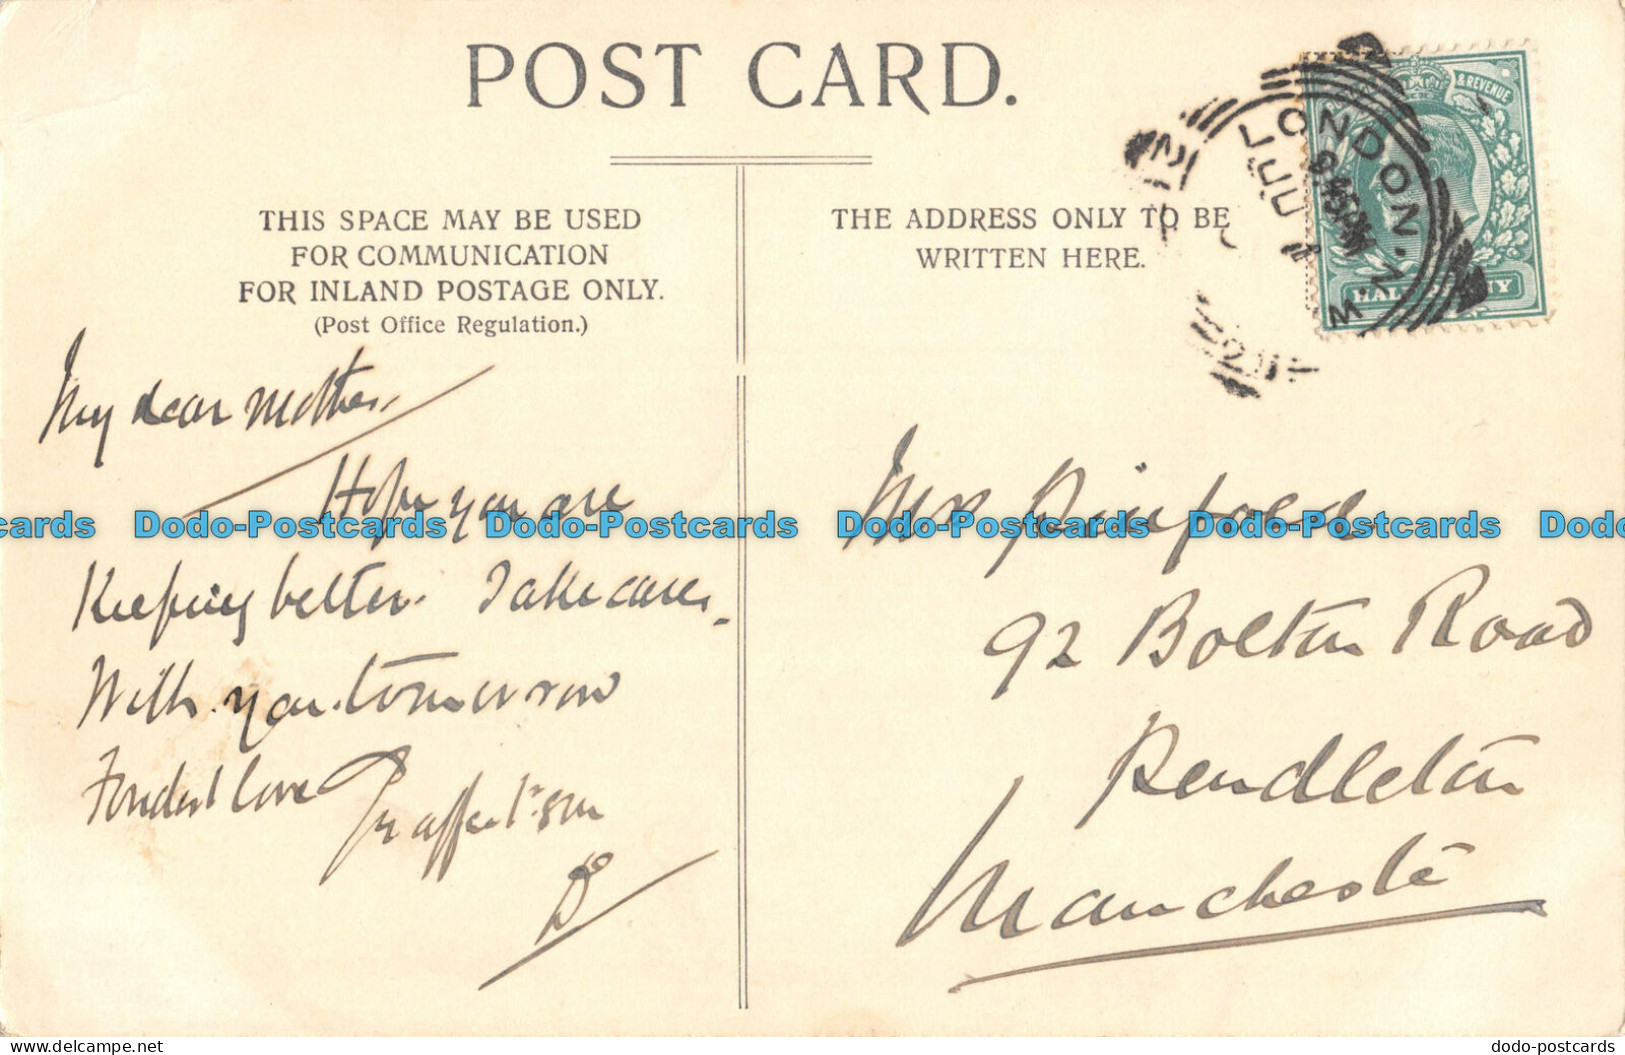 POST CARD.
THIS SPACE MAY BE USED
FOR COMMUNICATION
FOR INLAND POSTAGE ONLY.
(Post Office Regulation.)
THE ADDRESS ONLY TO BE
WRITTEN HERE.
& REVENUE
HALFPENNY
LONDON. N.W
My dear Mother,
Hope you are
Keeping better. Take care,
With you tomorrow
Fondest love
Yr affect: son
Mrs
92 Bolton Road
Pendleton
Manchester
Dodo-Postcards Dodo-Postcards Dodo-Postcards Dodo-Postcards
dodo-postcards
delcampe.net